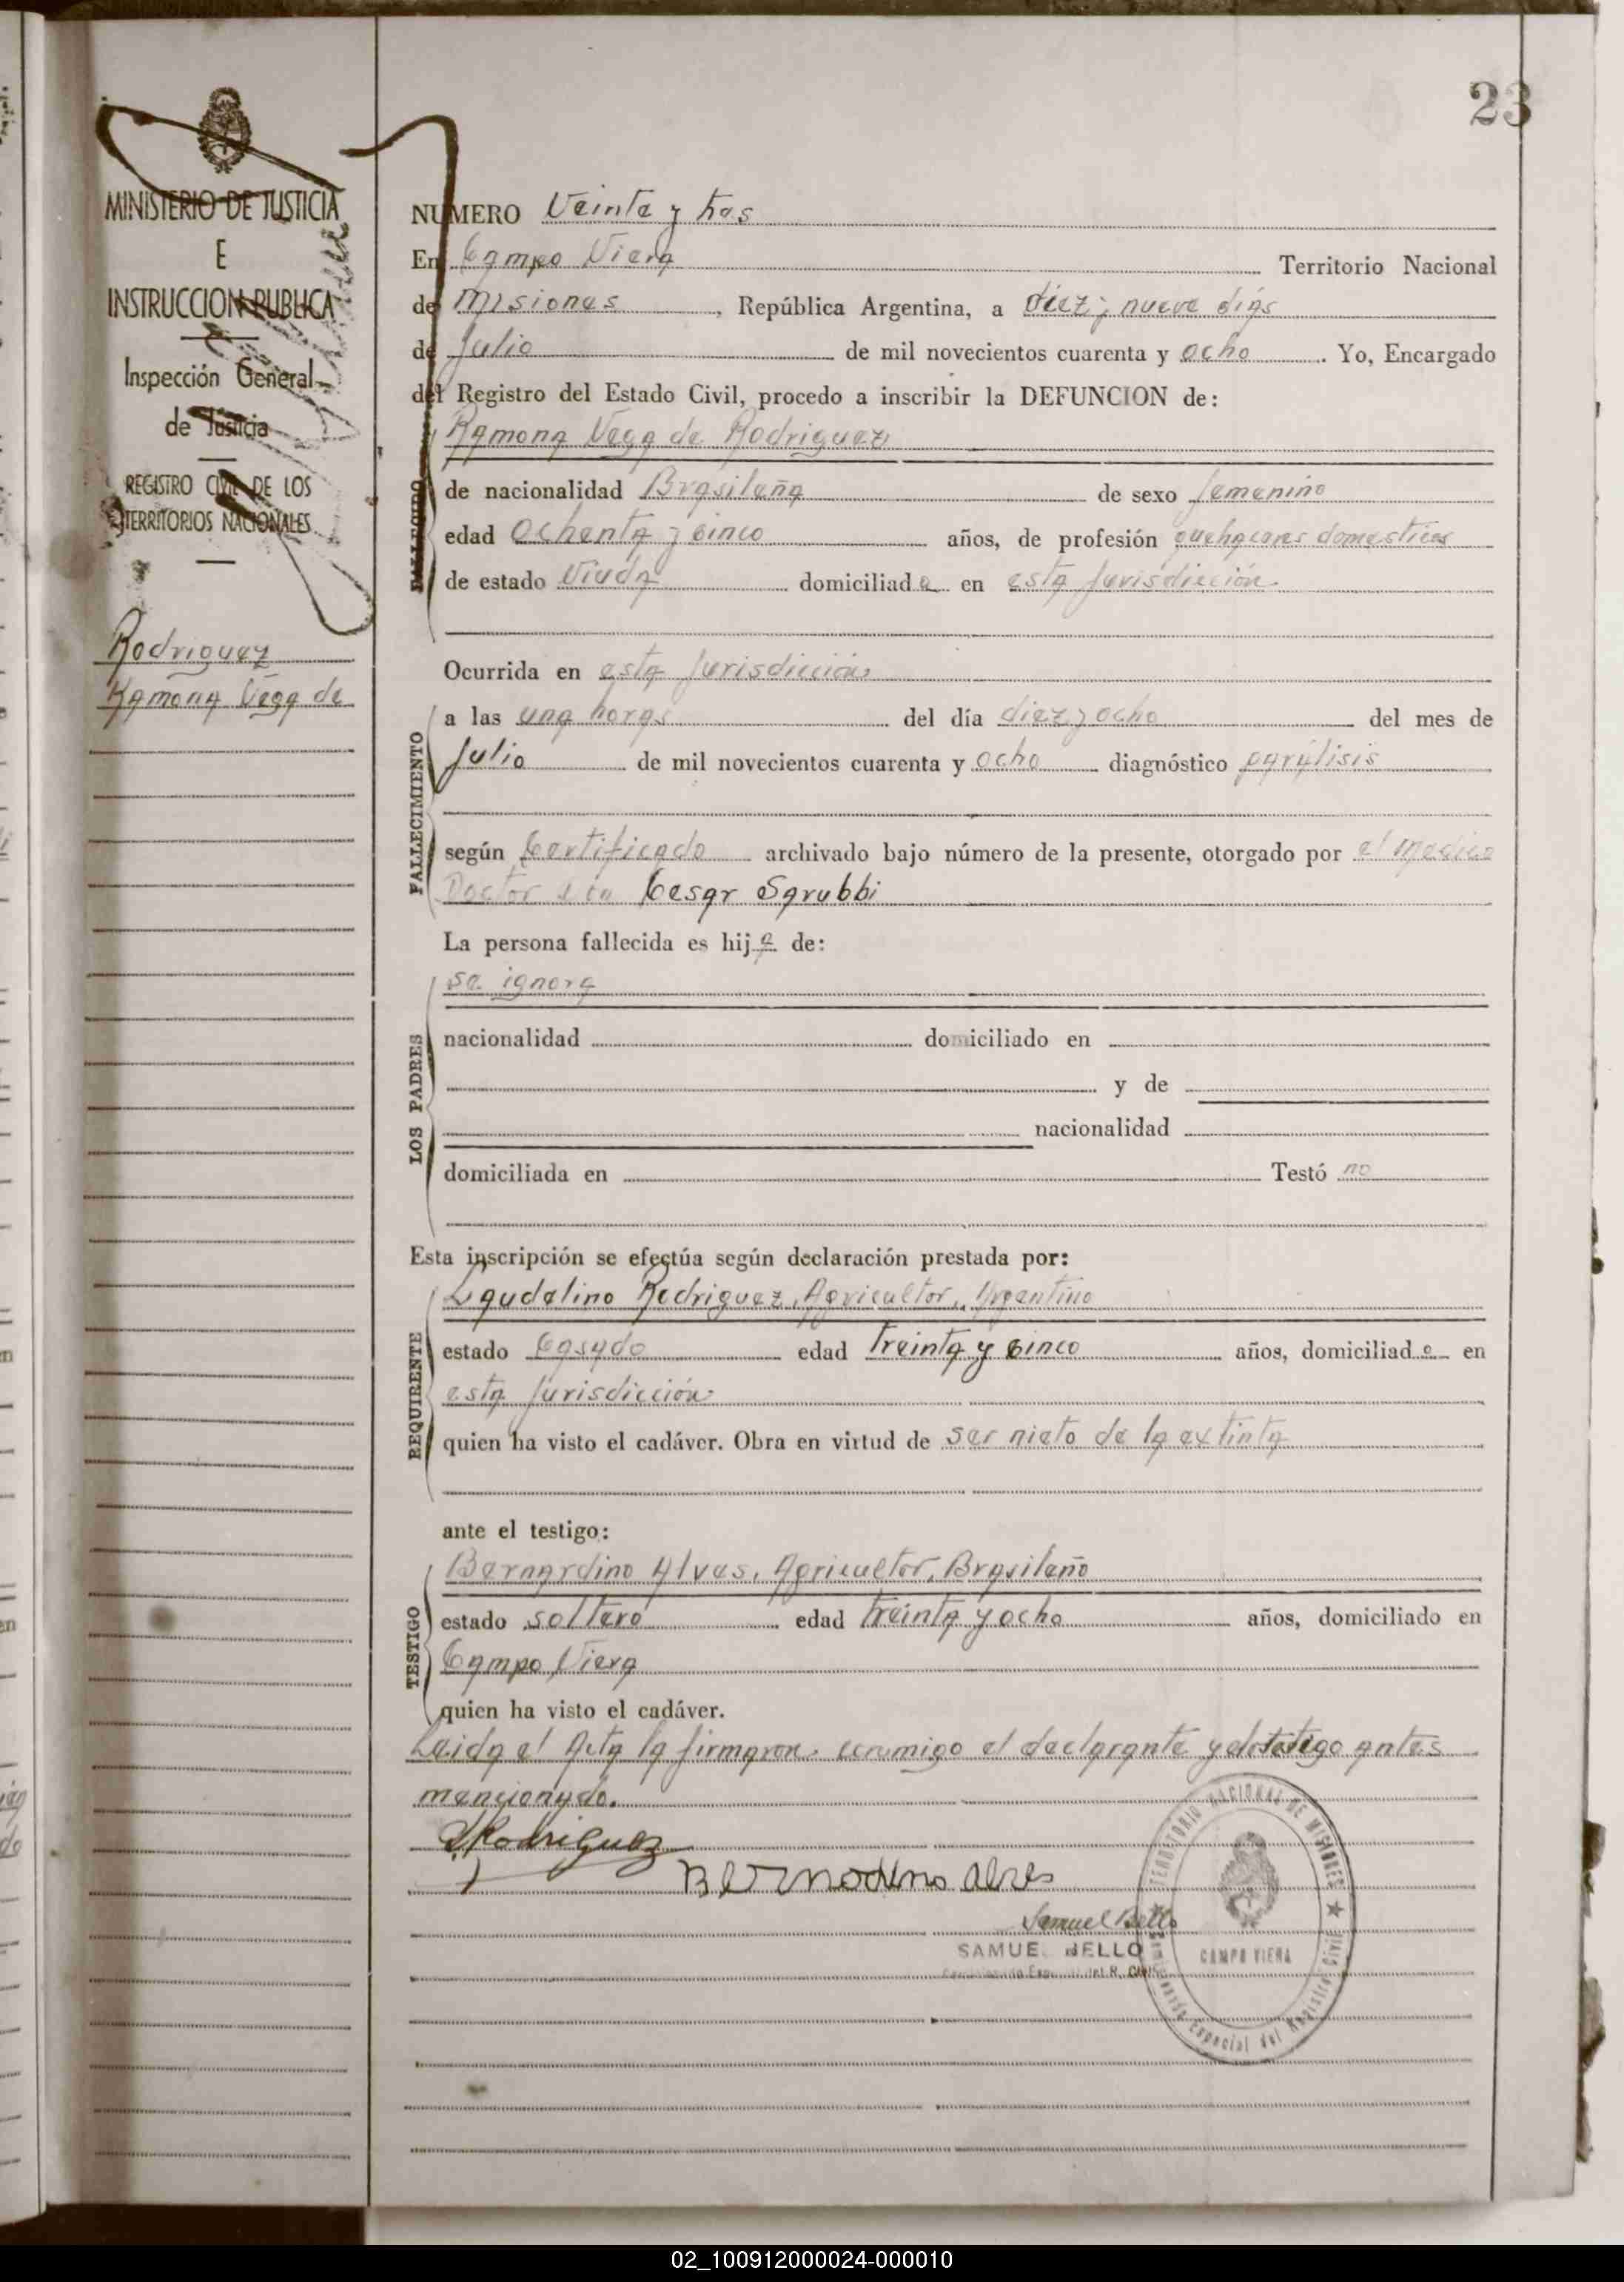 23
MINISTERIO DE JUSTICIA
E
INSTRUCCION PUBLICA
Inspección General
de Justicia
REGISTRO CIVIL DE LOS
TERRITORIOS NACIONALES
Rodriguez
Ramona Vega de
NUMERO Veinte y tres
En Campo Viera Territorio Nacional
de Misiones, República Argentina, a diez y nueve días
de Julio de mil novecientos cuarenta y ocho. Yo, Encargado
del Registro del Estado Civil, procedo a inscribir la DEFUNCION de:
Ramona Vega de Rodriguez
de nacionalidad Brasileña de sexo femenino
edad Ochenta y cinco años, de profesión quehaceres domesticos
de estado Viuda domiciliada en esta Jurisdicción
Ocurrida en esta Jurisdicción
FALLECIMIENTO
a las una horas del día diez y ocho del mes de
Julio de mil novecientos cuarenta y ocho diagnóstico parálisis
según Certificado archivado bajo número de la presente, otorgado por el Medico
Doctor Don Cesar Sarubbi
La persona fallecida es hija de:
LOS PADRES
se ignora
nacionalidad domiciliado en
y de
nacionalidad
domiciliada en Testó no
Esta inscripción se efectúa según declaración prestada por:
REQUIRENTE
Laudelino Rodriguez, Agricultor, Argentino
estado Casado edad Treinta y cinco años, domiciliado en
esta Jurisdicción
quien ha visto el cadáver. Obra en virtud de ser nieto de la extinta
ante el testigo:
TESTIGO
Bernardino Alves, Agricultor, Brasileño
estado soltero edad treinta y ocho años, domiciliado en
Campo Viera
quien ha visto el cadáver.
Leida el Acta la firmaron conmigo el declarante y el testigo antes
mencionado.
Rodriguez
Bernardino Alves
Samuel Bello
SAMUEL BELLO
TERRITORIO NACIONAL DE MISIONES
CAMPO VIERA
Especial del Registro Civil
02_100912000024-000010